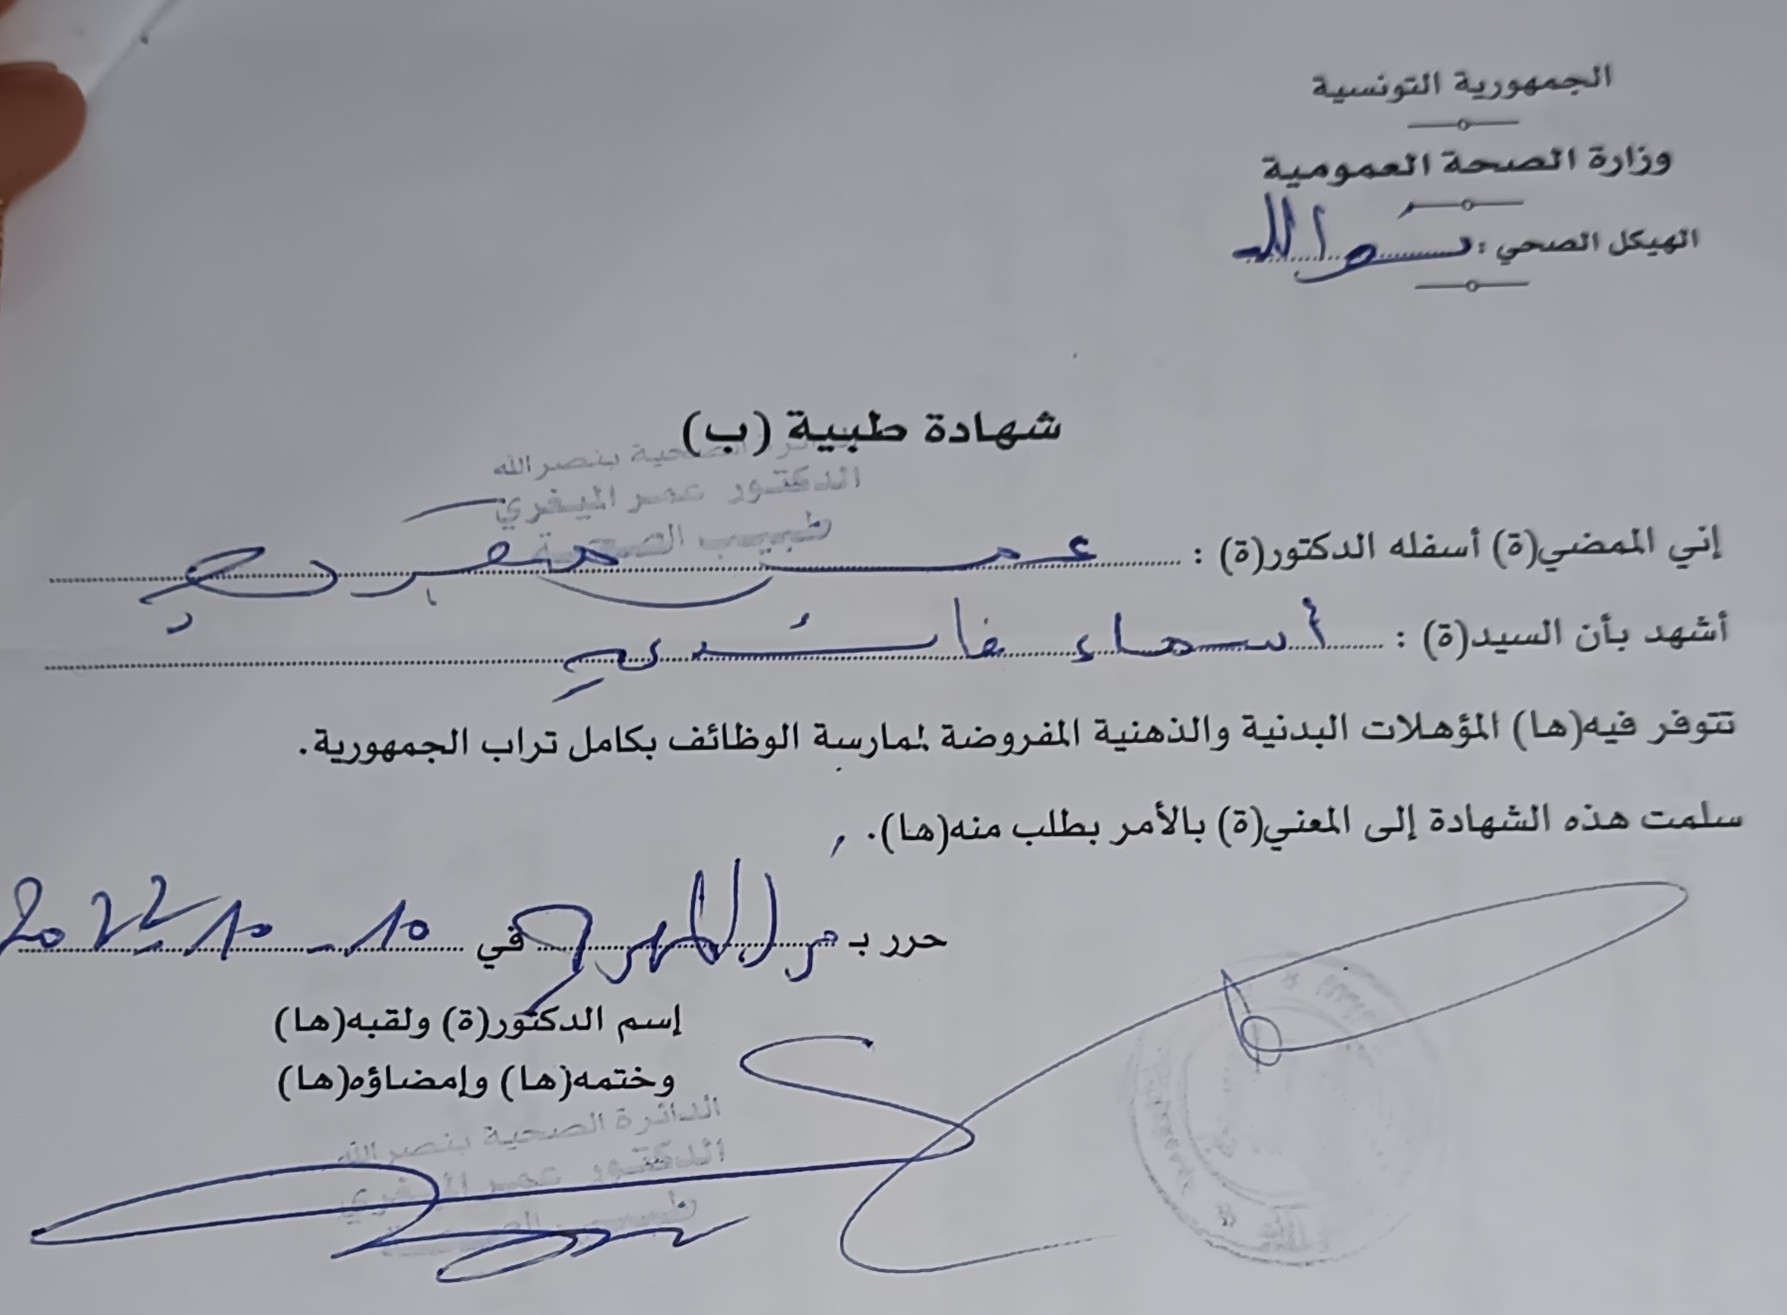 الجمهورية التونسية
وزارة الصحة العمومية
الهيكل الصحي : نصر الله
شهادة طبية (ب)
الصحية بنصر الله
الدكتور عمر الميغري
طبيب الصحة
إني الممضي(ة) أسفله الدكتور(ة) : عمر
أشهد بأن السيد(ة) : أسماء فائدي
تتوفر فيه(ها) المؤهلات البدنية والذهنية المفروضة لممارسة الوظائف بكامل تراب الجمهورية.
سلمت هذه الشهادة إلى المعني(ة) بالأمر بطلب منه(ها).
حرر بـ في 10 - 10 2022
إسم الدكتور(ة) ولقبه(ها)
وختمه(ها) وإمضاؤه(ها)
الدائرة الصحية بنصر الله
الدكتور عمر الميغري
طبيب الصحة